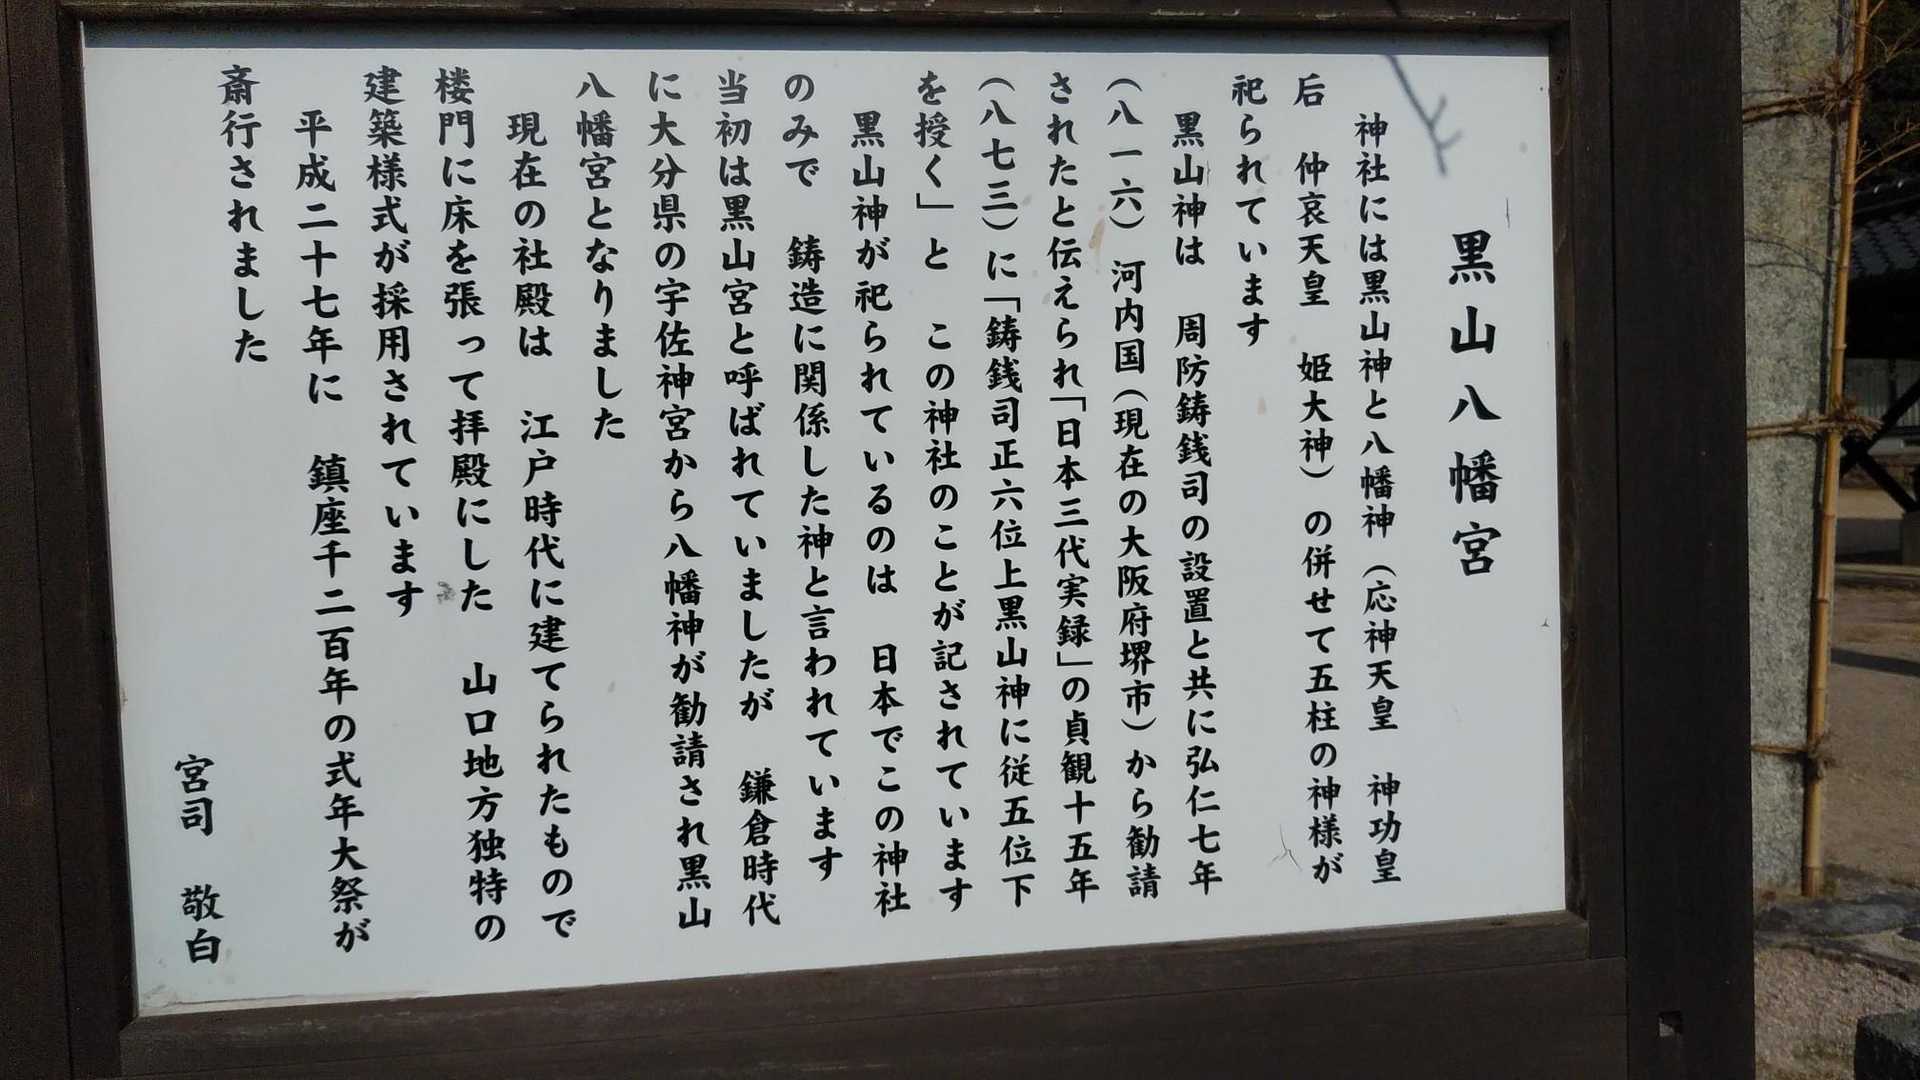 黒山八幡宮
神社には黒山神と八幡神（応神天皇　神功皇
后　仲哀天皇　姫大神）の併せて五柱の神様が
祀られています
黒山神は　周防鋳銭司の設置と共に弘仁七年
（八一六）河内国（現在の大阪府堺市）から勧請
されたと伝えられ「日本三代実録」の貞観十五年
（八七三）に「鋳銭司正六位上黒山神に従五位下
を授く」と　この神社のことが記されています
黒山神が祀られているのは　日本でこの神社
のみで　鋳造に関係した神と言われています
当初は黒山宮と呼ばれていましたが　鎌倉時代
に大分県の宇佐神宮から八幡神が勧請され黒山
八幡宮となりました
現在の社殿は　江戸時代に建てられたもので
楼門に床を張って拝殿にした　山口地方独特の
建築様式が採用されています
平成二十七年に　鎮座千二百年の式年大祭が
斎行されました
宮司　敬白